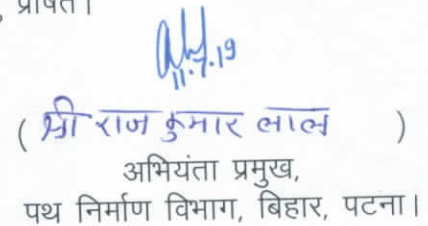 प्रेषित।
11.7.19
( श्री राज कुमार लाल )
अभियंता प्रमुख,
पथ निर्माण विभाग, बिहार, पटना।